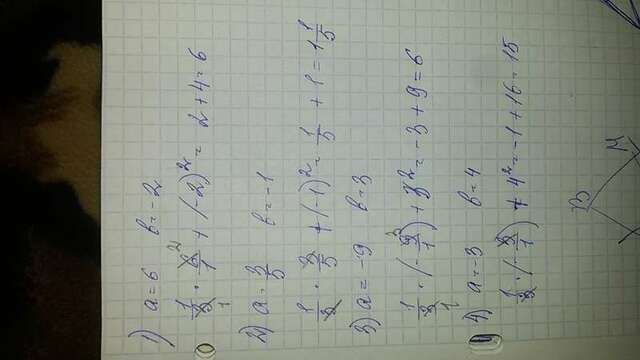 1) a = 6 b = -2
1/3 · 6/1 + (-2)² = 2 + 4 = 6
2) a = 3/5 b = -1
1/3 · 3/5 + (-1)² = 1/5 + 1 = 1 1/5
3) a = -9 b = 3
1/3 · (-9/1) + 3² = -3 + 9 = 6
4) a = -3 b = 4
1/3 · (-3/1) + 4² = -1 + 16 = 15
B
M